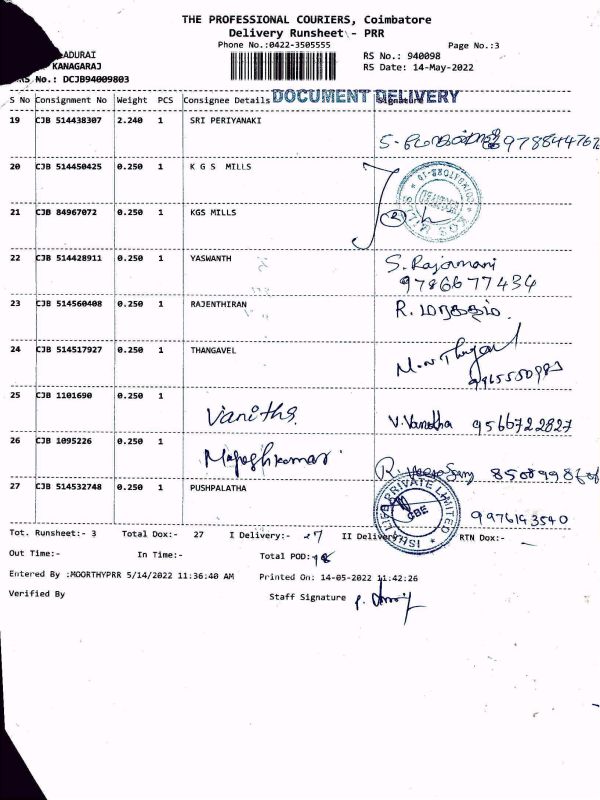 THE PROFESSIONAL COURIERS, Coimbatore
Delivery Runsheet - PRR
Phone No.:0422-3505555
Page No.:3
ADURAI
KANAGARAJ
RS No.: DCJB94009803
RS No.: 940098
RS Date: 14-May-2022
S No Consignment No Weight PCS Consignee Details DOCUMENT DELIVERY Signature
19 CJB 514438307 2.240 1 SRI PERIYANAKI
20 CJB 514450425 0.250 1 K G S MILLS
21 CJB 84967072 0.250 1 KGS MILLS 2
22 CJB 514428911 0.250 1 YASWANTH S. Rajamani
9786677434
23 CJB 514560408 0.250 1 RAJENTHIRAN R. மரகதம்.
24 CJB 514517927 0.250 1 THANGAVEL
25 CJB 1101690 0.250 1 Vanitha V. Vanitha 9566722827
26 CJB 1095226 0.250 1
27 CJB 514532748 0.250 1 PUSHPALATHA PRIVATE LIMITED CBE
9976143540
Tot. Runsheet:- 3 Total Dox:- 27 I Delivery:- 27 II Delivery:- RTN Dox:-
Out Time:- In Time:- Total POD:
Entered By :MOORTHYPRR 5/14/2022 11:36:40 AM Printed On: 14-05-2022 11:42:26
Verified By Staff Signature